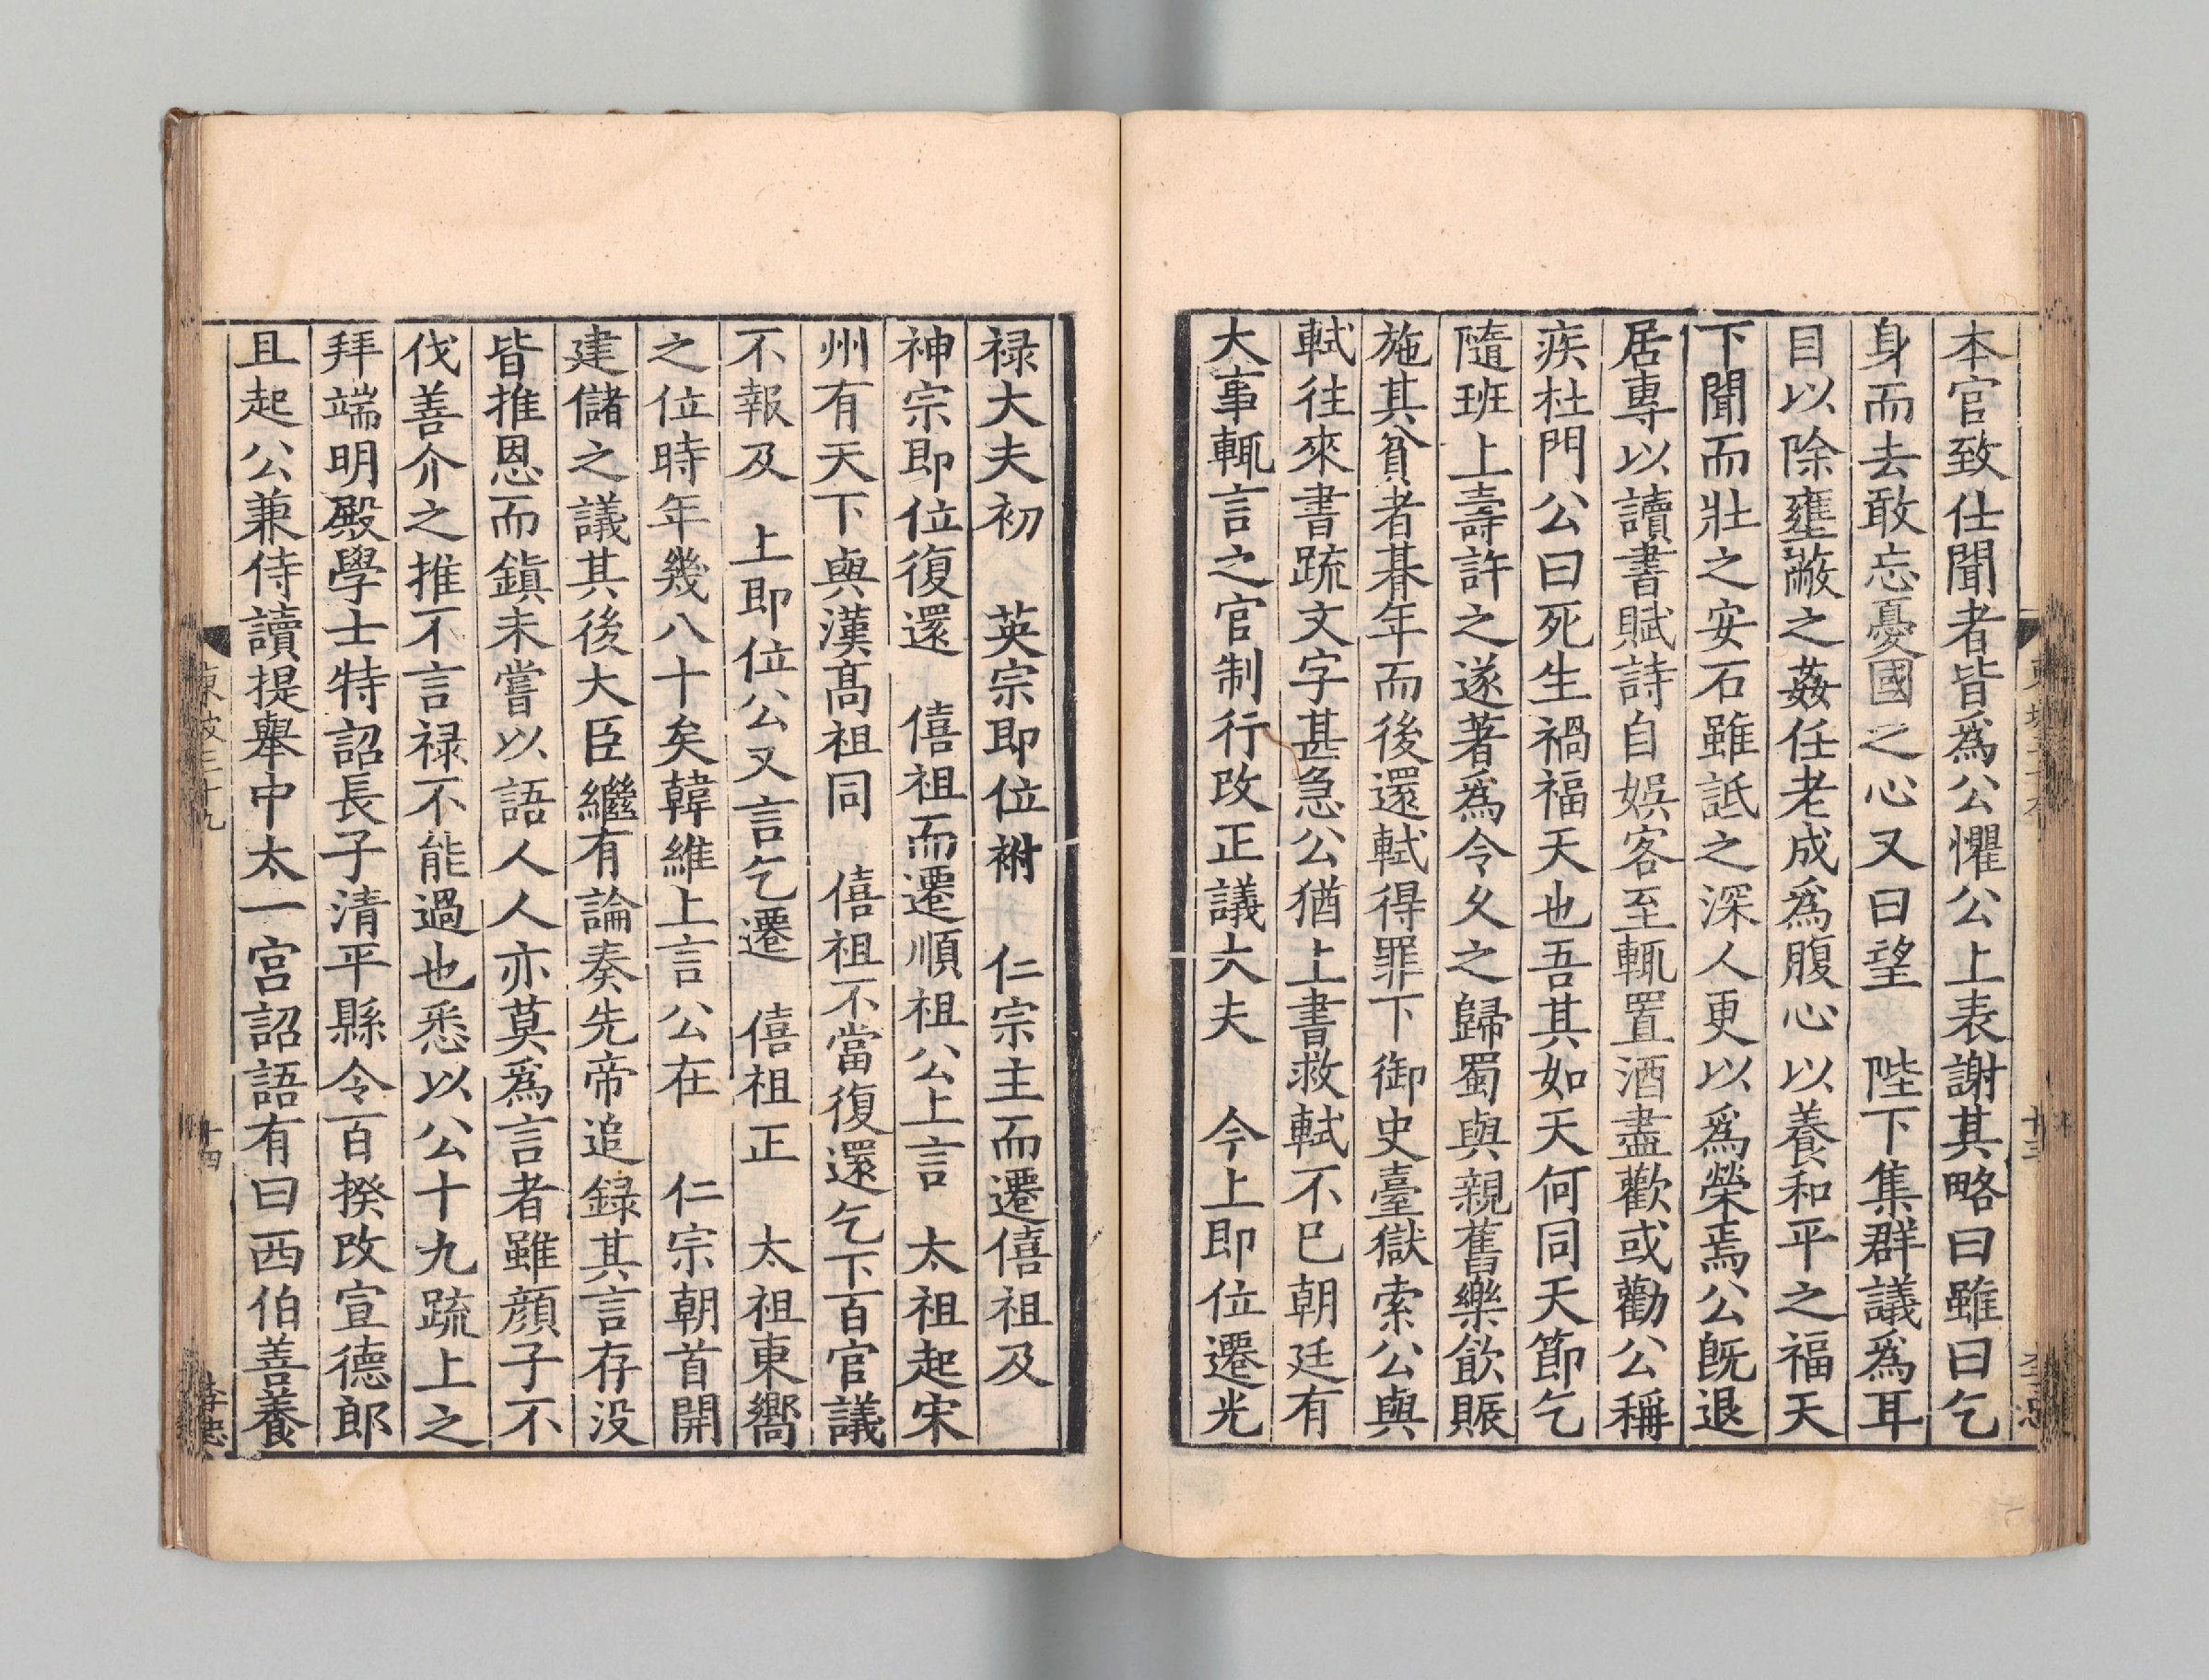 本官致仕聞者皆爲公懼公上表謝其略曰雖曰乞
身而去敢忘憂國之心又曰望　陛下集群議爲耳
目以除壅蔽之姦任老成爲腹心以養和平之福天
下聞而壯之安石雖詆之深人更以爲榮焉公旣退
居專以讀書賦詩自娛客至輒置酒盡歡或勸公稱
疾杜門公曰死生禍福天也吾其如天何同天節乞
隨班上壽許之遂著爲令久之歸蜀與親舊樂飲賑
施其貧者朞年而後還軾得罪下御史臺獄索公與
軾往來書疏文字甚急公猶上書救軾不已朝廷有
大事輒言之官制行改正議大夫　今上即位遷光
祿大夫初　英宗即位祔　仁宗主而遷僖祖及
神宗即位復還　僖祖而遷順祖公上言　太祖起宋
州有天下與漢髙祖同　僖祖不當復還乞下百官議
不報及　上即位公又言乞遷　僖祖正　太祖東嚮
之位時年幾八十矣韓維上言公在　仁宗朝首開
建儲之議其後大臣繼有論奏先帝追録其言存没
皆推恩而鎮未嘗以語人人亦莫爲言者雖顔子不
伐善介之推不言禄不能過也悉以公十九疏上之
拜端明殿學士特詔長子清平縣令百揆改宣德郎
且起公兼侍讀提舉中太一宮詔語有曰西伯善養
東坡三十九
十四